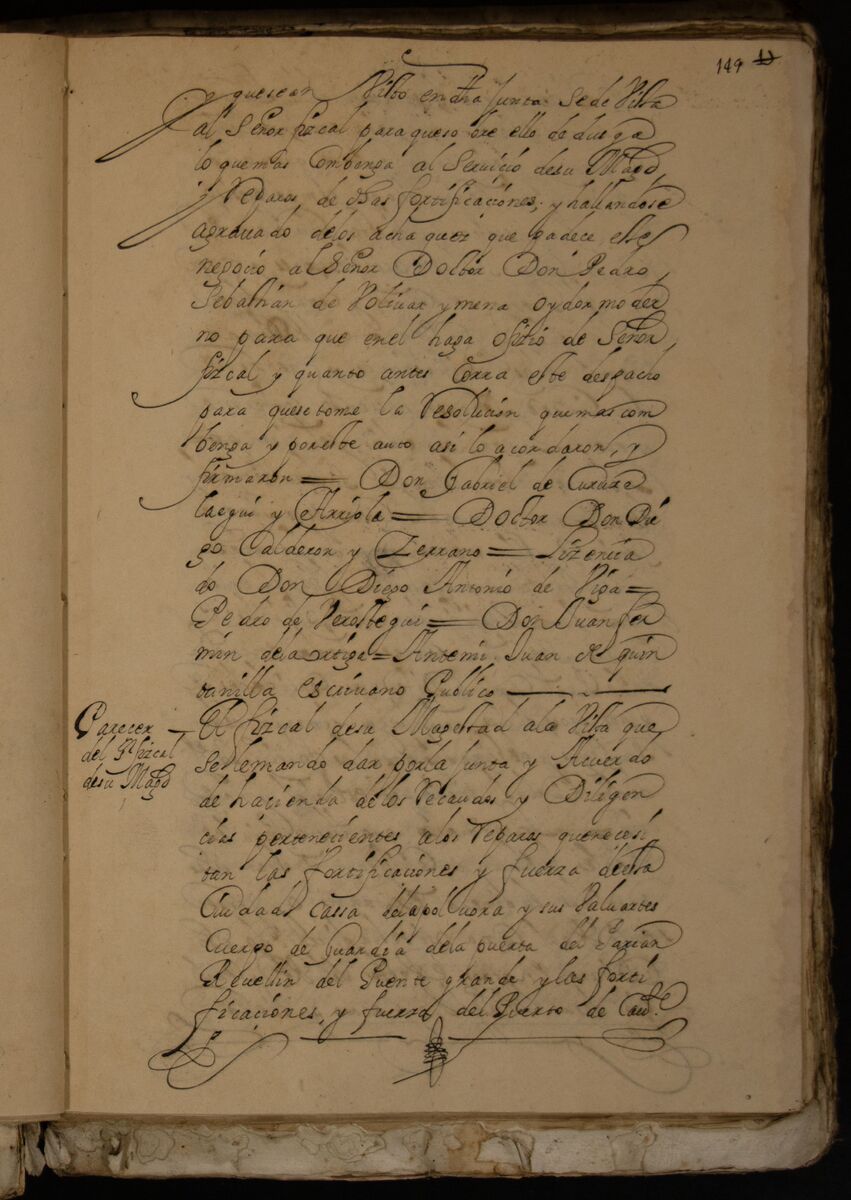 149 11
y que sean Visto en dha Junta Se de Vista
al Señor fizcal para que sobre ello dedusga
lo que mas Combenga al Servicio de su Magd
y Reparos, de dhas fortificaciones; y hallandose
agrauado de los achaquez que padece, este
negocio al Señor Doctor Don Pedro,
Sebastián de Voliuar y mena oydor moder
no para que en el haga ofizio de Señor
fizcal y quanto antes Corra este despacho
para que se tome la Resolución que mas com
benga y por este auto asi lo acordaron, y
firmaron = Don Gabriel de Curuze
laegui y Arriola = Doctor Don Die
go Calderon y Serrano = Lizencia
do Don Diego Antonio de Viga =
Pedro de Verostegui = Don Juan fer
min de la ortiga = Antemi Juan de quin
tanilla escriuano Publico
Parecer
del Sr fizcal
de su Magd
El fizcal de su Magestad a la Vista que
se le mando dar por la Junta y Acuerdo
de hacienda de los Recaudos y Diligen
cias pertenecientes a los Reparos que necesi
tan las fortificaciones y fuerza desta
Ciudad Cassa de la poluora y sus Valuartes
Cuerpo de Guardia de la puerta del Parian
Reuellin del Puente grande y las forti
ficaciones, y fuerza del Puerto de Caue